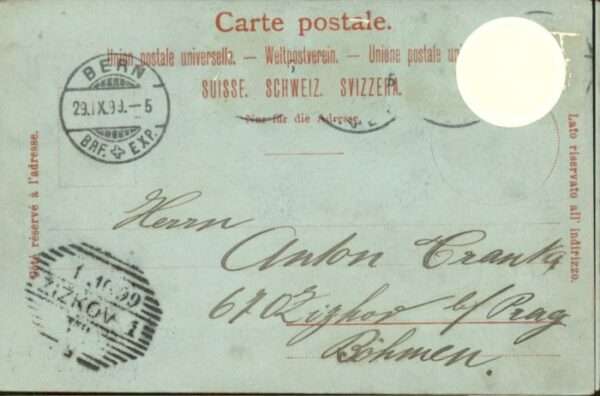 Carte postale.
Union postale universelle. — Weltpostverein. — Unione postale
SUISSE. SCHWEIZ. SVIZZERA.
Nur für die Adresse.
BERN
29.IX.99.–5
BRF. EXP.
Côté réservé à l'adresse.
Lato riservato all' indirizzo.
Herrn
Anton
67. Zizkov b/ Prag
Böhmen.
1.10.99
ŽIŽKOV 1